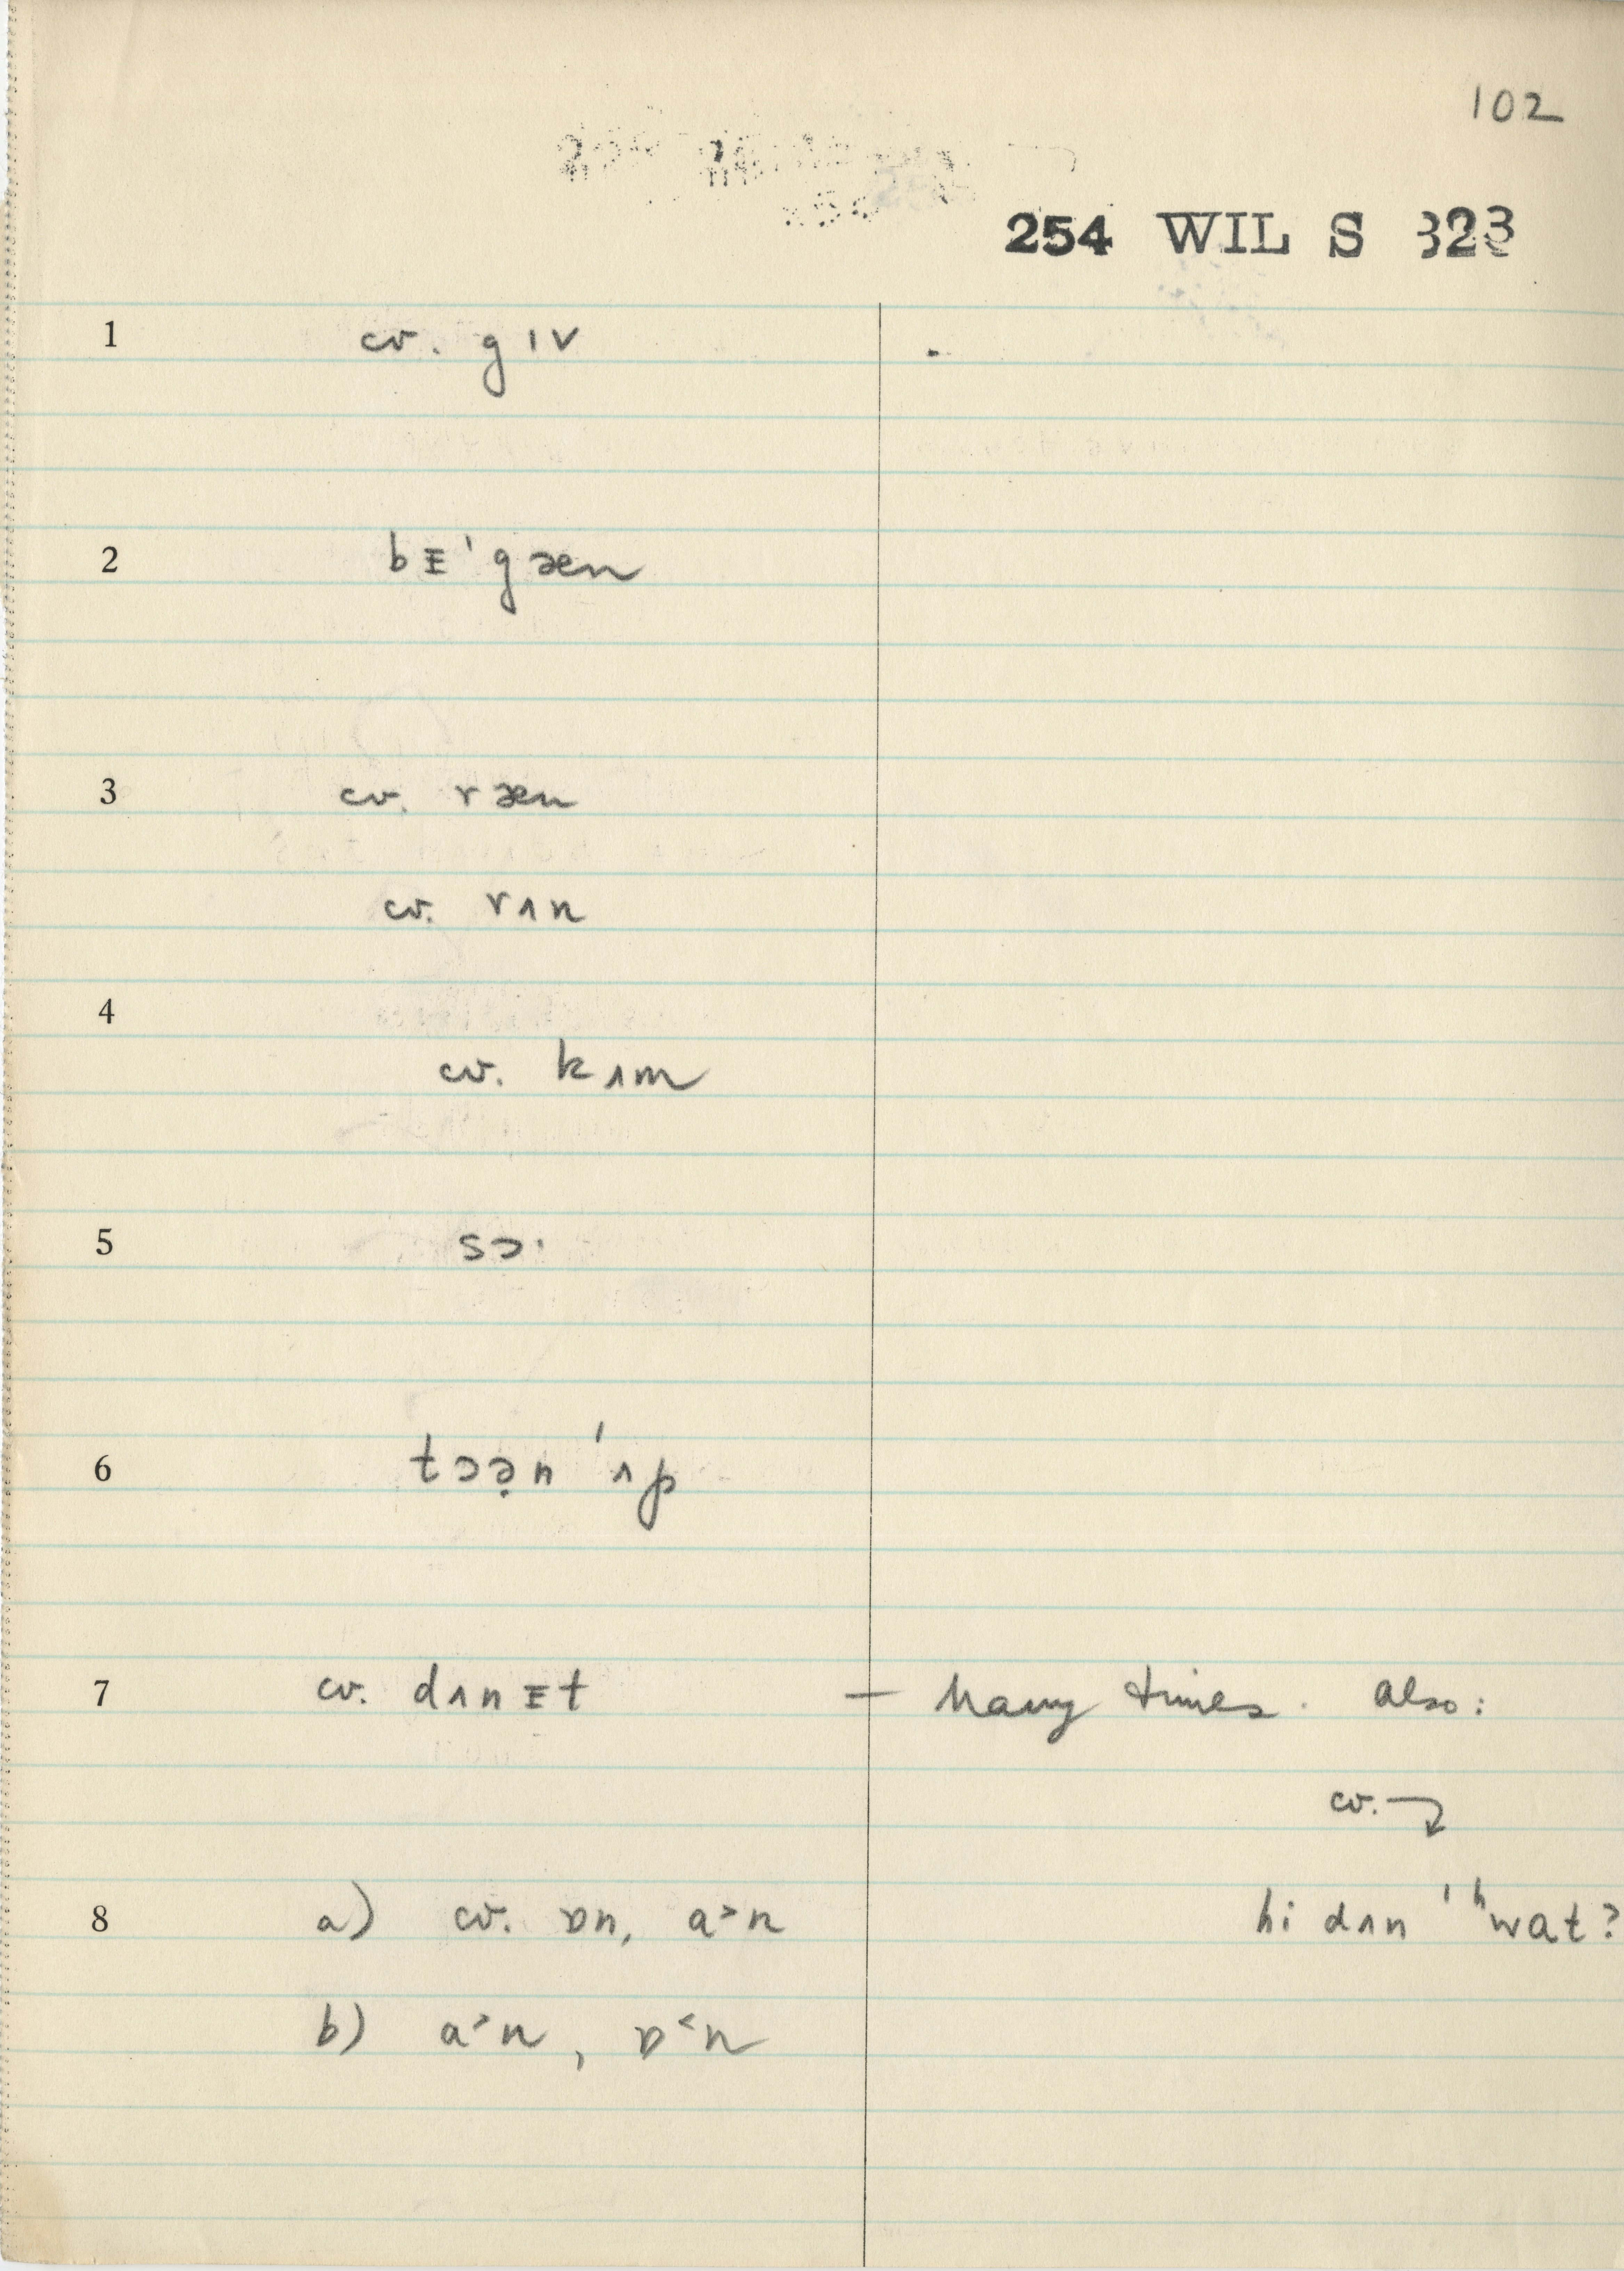 102
254 WIL S 323
1 cv. gɪv
2 bᵻˈgæn
3 cv. ræn
cv. rʌn
4
cv. kʌm
5 sɔ·
6 tɔə̣n ˈʌp
7 cv. dʌnᵻt — Many times. Also:
cv.
8 a) cv. ɒn, a˃n hi dʌn ˈʰwat?
b) a˃n, ɒ˂n